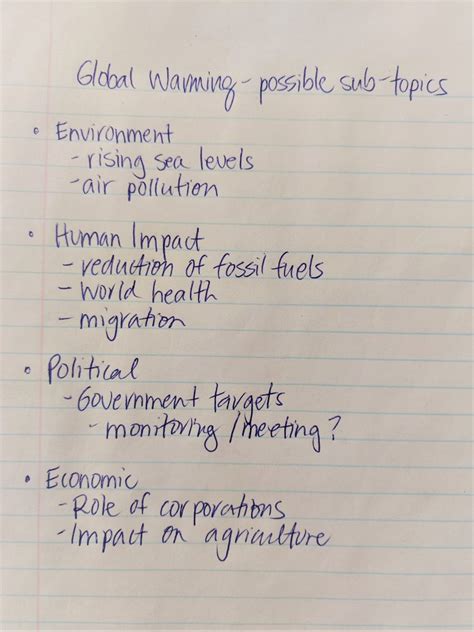 Global Warming - possible sub-topics
• Environment
- rising sea levels
- air pollution
• Human Impact
- reduction of fossil fuels
- World health
- migration
• Political
- Government targets
- monitoring / meeting ?
• Economic
- Role of corporations
- Impact on agriculture